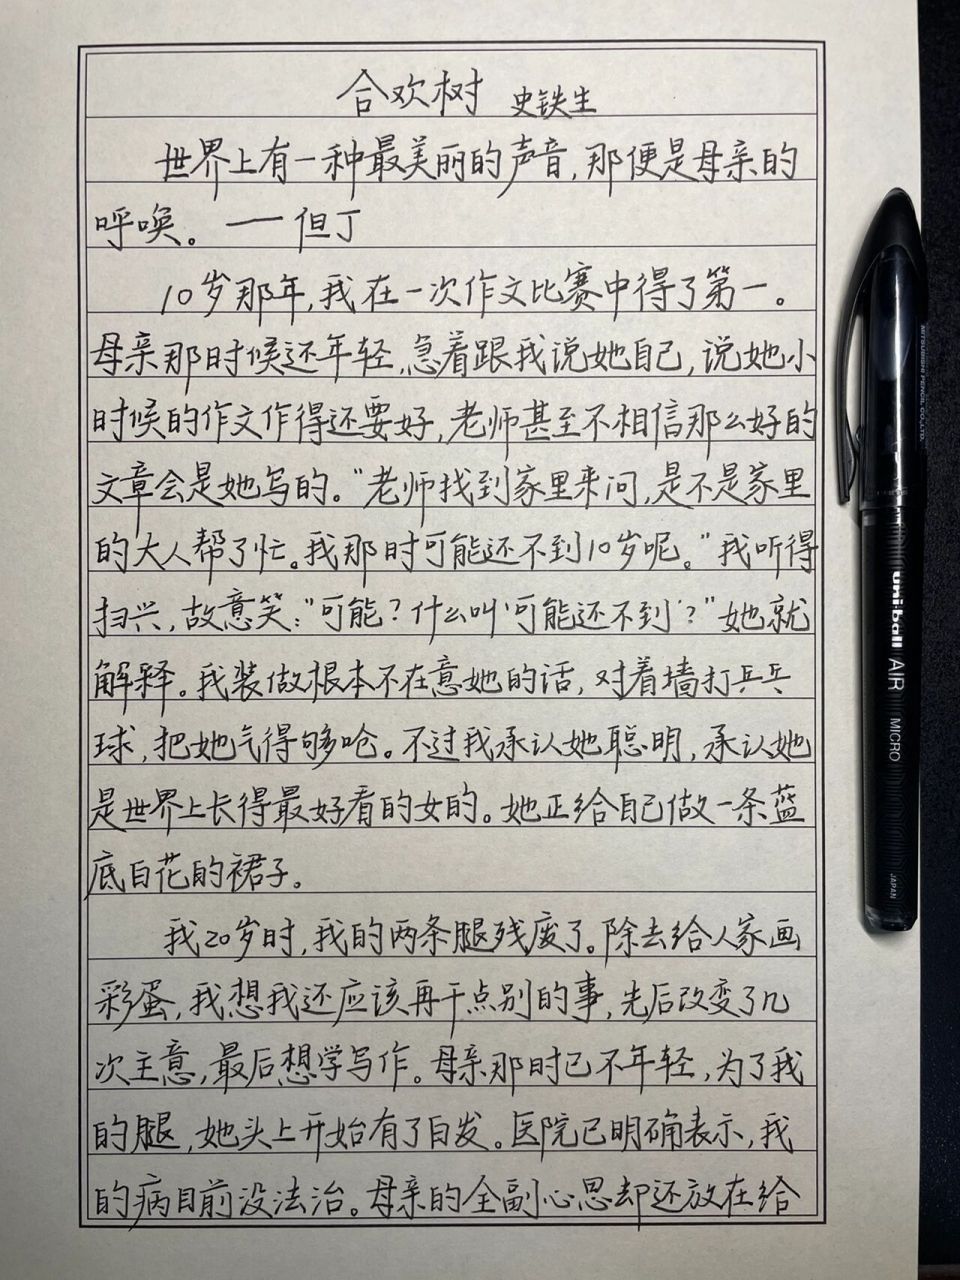 合欢树 史铁生
世界上有一种最美丽的声音,那便是母亲的
呼唤。一但丁
10岁那年,我在一次作文比赛中得了第一。
母亲那时候还年轻,急着跟我说她自己,说她小
时候的作文作得还要好,老师甚至不相信那么好的
文章会是她写的。“老师找到家里来问,是不是家里
的大人帮了忙。我那时可能还不到10岁呢。”我听得
扫兴,故意笑:“可能?什么叫‘可能还不到’?”她就
解释。我装做根本不在意她的话,对着墙打乒乓
球,把她气得够呛。不过我承认她聪明,承认她
是世界上长得最好看的女的。她正给自己做一条蓝
底白花的裙子。
我20岁时,我的两条腿残废了。除去给人家画
彩蛋,我想我还应该再干点别的事,先后改变了几
次主意,最后想学写作。母亲那时已不年轻,为了我
的腿,她头上开始有了白发。医院已明确表示,我
的病目前没法治。母亲的全副心思却还放在给
MITSUBISHI PENCIL CO.,LTD.
uni-ball AIR MICRO
JAPAN